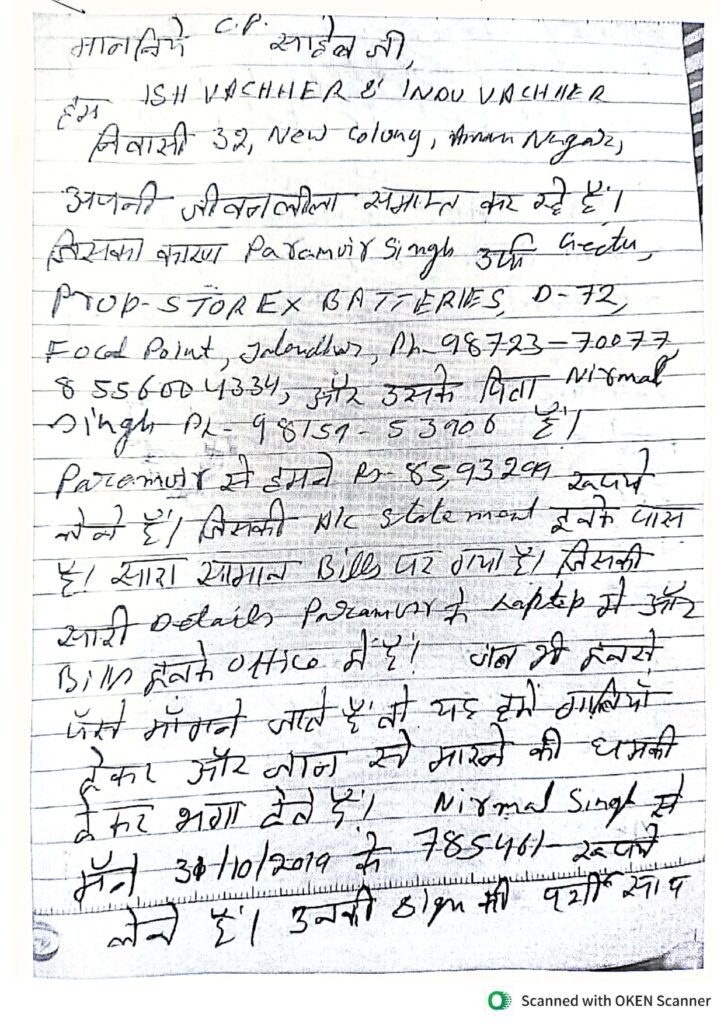 मानयिये C.P. साहेब जी,
हम ISH VACHHER & INDU VACHHER
निवासी 32, New Colony, Aman Nagar,
अपनी जीवनलीला समाप्त कर रहे हैं।
जिसका कारण Paramvir Singh उर्फ Geetu,
PROP- STOREX BATTERIES, D-72,
Focal Point, Jalandhar, Ph-98723-70077
8556004334, और उसके पिता Nirmal
Singh Ph- 98159-53906 हैं।
Paramvir से हमने Rs- 85,93,299 रूपये
लेने हैं। जिसकी A/c Statement इनके पास
है। सारा सामान Bills पर गया है। जिसकी
सारी Details Paramvir के Laptop में और
Bills इनके Office में हैं। जब भी इनसे
पैसे माँगने जाते हैं तो यह हमें गालियाँ
देकर और जान से मारने की धमकी
देकर भगा देते हैं। Nirmal Singh से
मैंने 31/10/2019 के 785461- रूपये
लेने हैं। उनकी Sign की पर्ची साथ
Scanned with OKEN Scanner